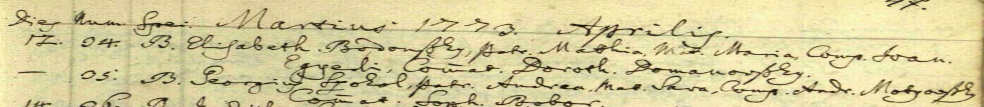 Dies Num. Spec. Martius 1773. Aprilis.
17. 04. B. Elisabeth. Bodonszky, patr. Mathia, Mat. Maria, Comp. Ioan.
Egyedi, Com̄at. Doroth. Domanovszky.
— 05. B. Georgi⁹ Szokol, patr. Andrea, Mat. Sara, Comp. Andr. Matyovszky
Com̄at. Soph. Bobor.